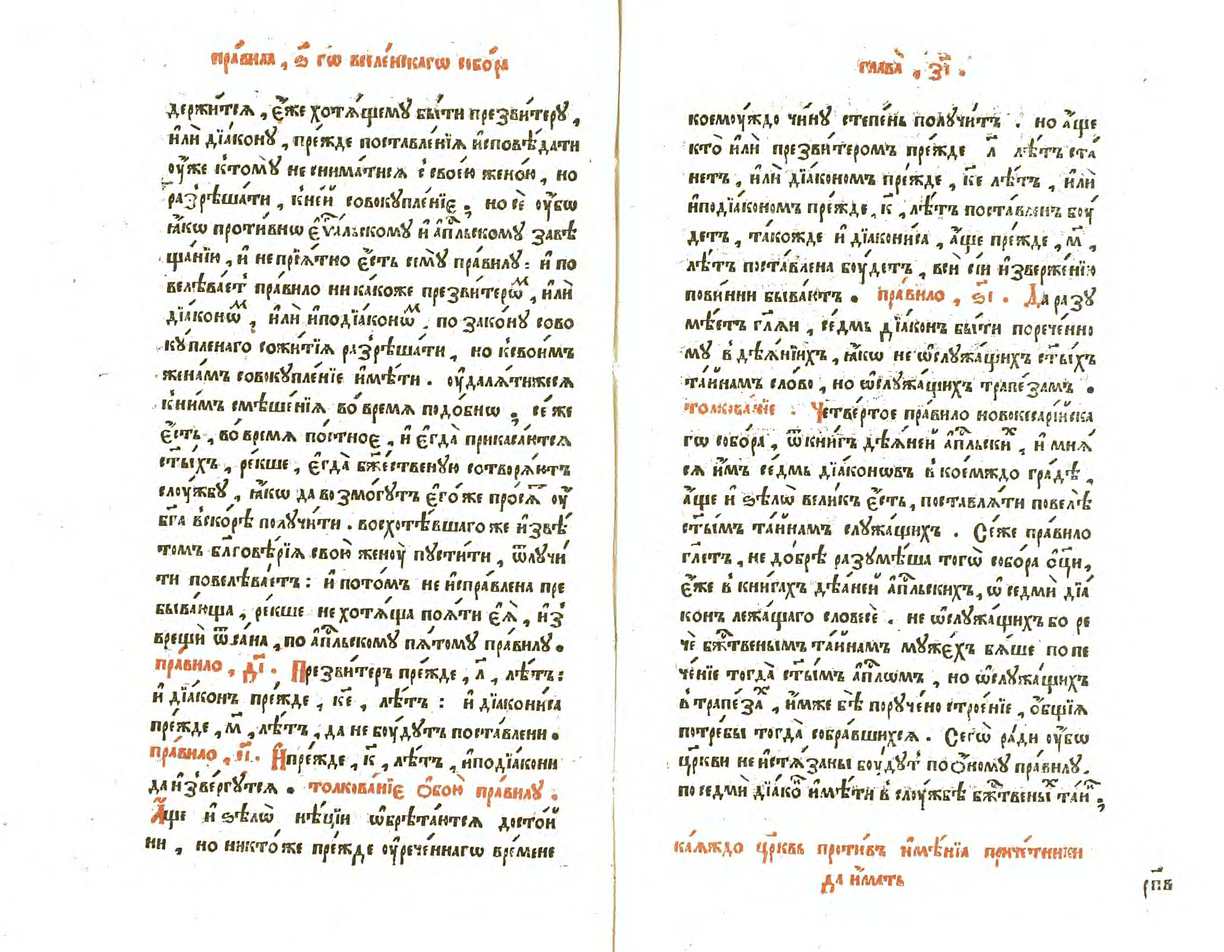 пра́вила , ѕ҃ гѡ вселе́нскагѡ собо́ра
держи́тсѧ , є҆́же хотѧ́щемꙋ бы́ти презви́терꙋ ,
и҆лѝ дїа́конꙋ , пре́жде поставле́нїѧ и҆сповѣ́дати
оу҆́же ктомꙋ̀ не снима́тисѧ с̾ свое́ю жено́ю , но
разрѣша́ти , к̾не́й совокꙋпле́нїє . но сѐ оу҆́бѡ
ꙗ҆́кѡ проти́внѡ є҆ѵ҃льскомꙋ и҆ а҆п҃льскомꙋ завѣ
ща́нїю , и҆ непрїѧ́тно є҆́сть семꙋ̀ пра́вилꙋ : и҆ по
велѣва́етъ пра́вило ника́коже презви́терѡ́м , и҆лѝ
дїа́конѡм , и҆лѝ и҆подїа́конѡм . по зако́нꙋ сово
кꙋ́пленаго сожи́тїѧ разрѣша́ти , но ксвои́мъ
жена́мъ совокꙋпле́нїе и҆мѣ́ти . оу҆далѧ́тижесѧ
к̾ни́мъ смѣше́нїѧ во вре́мѧ подо́бнѡ , се́ же
є҆́сть , во вре́мѧ по́стноє , и҆ є҆гда̀ прикаса́ютсѧ
ст҃ы́хъ , ре́кше , є҆гда̀ бж҃е́ственꙋю сотворѧ́ютъ
слꙋ́жбꙋ , ꙗ҆́кѡ да возмо́гꙋтъ є҆го́же про́сѧт оу҆
бг҃а вско́рѣ полꙋчи́ти . восхотѣ́вшаго же и҆звѣ́
томъ бл҃говѣ́рїѧ свою̀ женоу̀ пꙋсти́ти , ѿлꙋчи́
ти повелѣва́етъ : и҆ пото́мъ не и҆спра́влена пре
быва́юща , ре́кше не хотѧ́ща поѧ́ти є҆ѧ̀ , и҆з̾
вре́щи ѿ са́на , по а҆п҃льскомꙋ пѧ́томꙋ пра́вилꙋ .
пра́вило , д҃і . Презви́теръ пре́жде , л҃ , лѣ́тъ :
и҆ дїа́конъ пре́жде , к҃е , лѣ́тъ : и҆ дїакони́са
пре́жде , м҃ , лѣ́тъ , да не бꙋ́дꙋтъ поста́влени .
пра́вило , є҃і . Нпре́жде , к҃ , лѣ́тъ , и҆подїа́кони
да и҆зве́ргꙋтсѧ . толкова́нїє ѻ҆бою̀ пра́вилꙋ .
А҆́ще и҆ ѕѣлѡ̀ нѣ́цїи ѡ҆брѣта́ютсѧ досто́й
ни , но никто́ же пре́жде оу҆рече́ннагѡ вре́мене
глава̀ , з҃і .
коемоу́ждо чи́нꙋ степе́нь полꙋчи́тъ . но а҆́ще
кто̀ и҆лѝ презви́теромъ пре́жде л҃ лѣ́тъ ста́
нетъ , и҆лѝ дїа́кономъ пре́жде , к҃е лѣ́тъ , и҆лѝ
и҆подїа́кономъ пре́жде , к҃ , лѣ́тъ поста́вленъ боу́
детъ , та́кожде и҆ дїакони́са , а҆́ще пре́жде , м҃ ,
лѣ́тъ поста́влена боу́детъ , всѝ сїѝ и҆зверже́нїю
пови́нни быва́ютъ . пра́вило , ѕ҃і . Да разꙋ
мѣ́етъ гл҃ѧи , се́дмь дїа́конъ бы́ти порече́нно
мꙋ в̾ дѣѧ́нїихъ , ꙗ҆́кѡ не ѡ҆слꙋжа́щихъ ст҃ы́хъ
та́йнамъ сло́во , но ѡ҆слꙋжа́щихъ трапе́замъ .
толкова́нїе . Четве́ртое пра́вило новокесарі́йска
гѡ собо́ра , ѿ кни́гъ дѣѧ́ней а҆п҃льски́х , и҆ мнѧ́
сѧ и҆́мъ се́дмь дїа́конѡвъ в̾ кое́мждо гра́дѣ ,
а҆́ще и҆ ѕѣлѡ̀ вели́къ є҆́сть , поставлѧ́ти повелѣ̀
ст҃ы́мъ та́йнамъ слꙋжа́щихъ . Се́же пра́вило
гл҃етъ , не до́брѣ разꙋмѣ́ша тогѡ̀ собо́ра ѻ҆ц҃и ,
є҆́же в̾ кни́гахъ дѣѧ́ней а҆п҃льскихъ , ѡ҆ седмѝ дїа́
конъ лежа́щаго словесѐ . не ѡ҆слꙋжа́щихъ бо ре
чѐ бж҃твенымъ та́йнамъ мꙋ́жєхъ бѧ́ше по пе
че́нїе тогда̀ ст҃ы́мъ а҆п҃лѡмъ , но ѡ҆слꙋжа́щихъ
в̾ трапе́зах , и҆́мже бѣ̀ порꙋче́но строе́нїе , ѻ҆́бщїѧ
потре́бы тогда̀ собра́вшихсѧ . Сегѡ̀ ра́ди оу҆́бѡ
цр҃кви не и҆стѧ́заны боу́дꙋт по ѻ҆́номꙋ пра́вилꙋ .
по седмѝ дїа́кѡ и҆мѣ́ти в̾ слоу́жбѣ бж҃твены́х та́йн ;
ка́ѧждо цр҃квь проти́въ и҆мѣ́нїѧ приче́тники
да и҆́мать
рп҃в